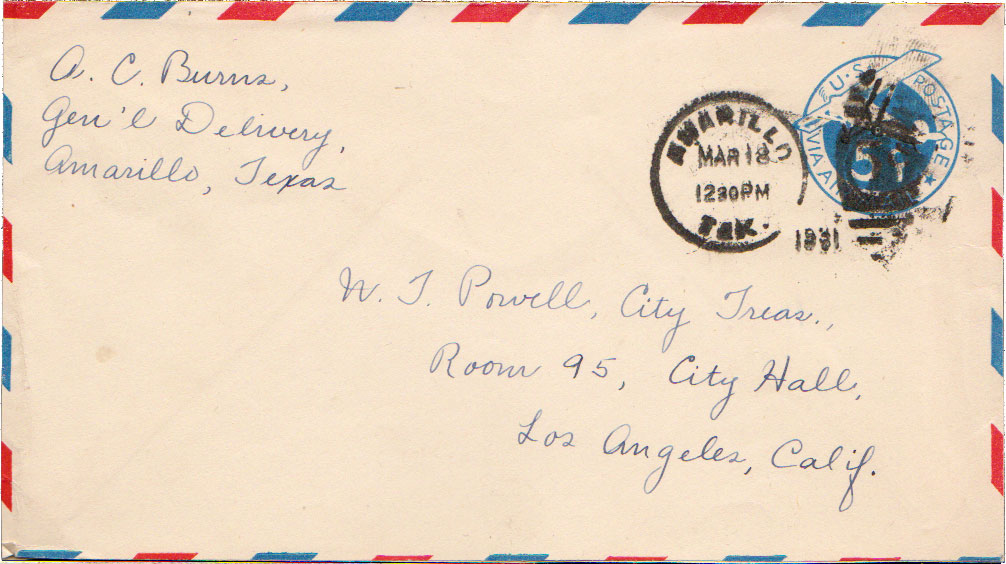 A. C. Burns,
Gen'l Delivery,
Amarillo, Texas
AMARILLO
MAR 18
1230PM
TEX.
1931
U·S· POSTAGE
VIA AIR
5¢
W. T. Powell, City Treas.,
Room 95, City Hall,
Los Angeles, Calif.